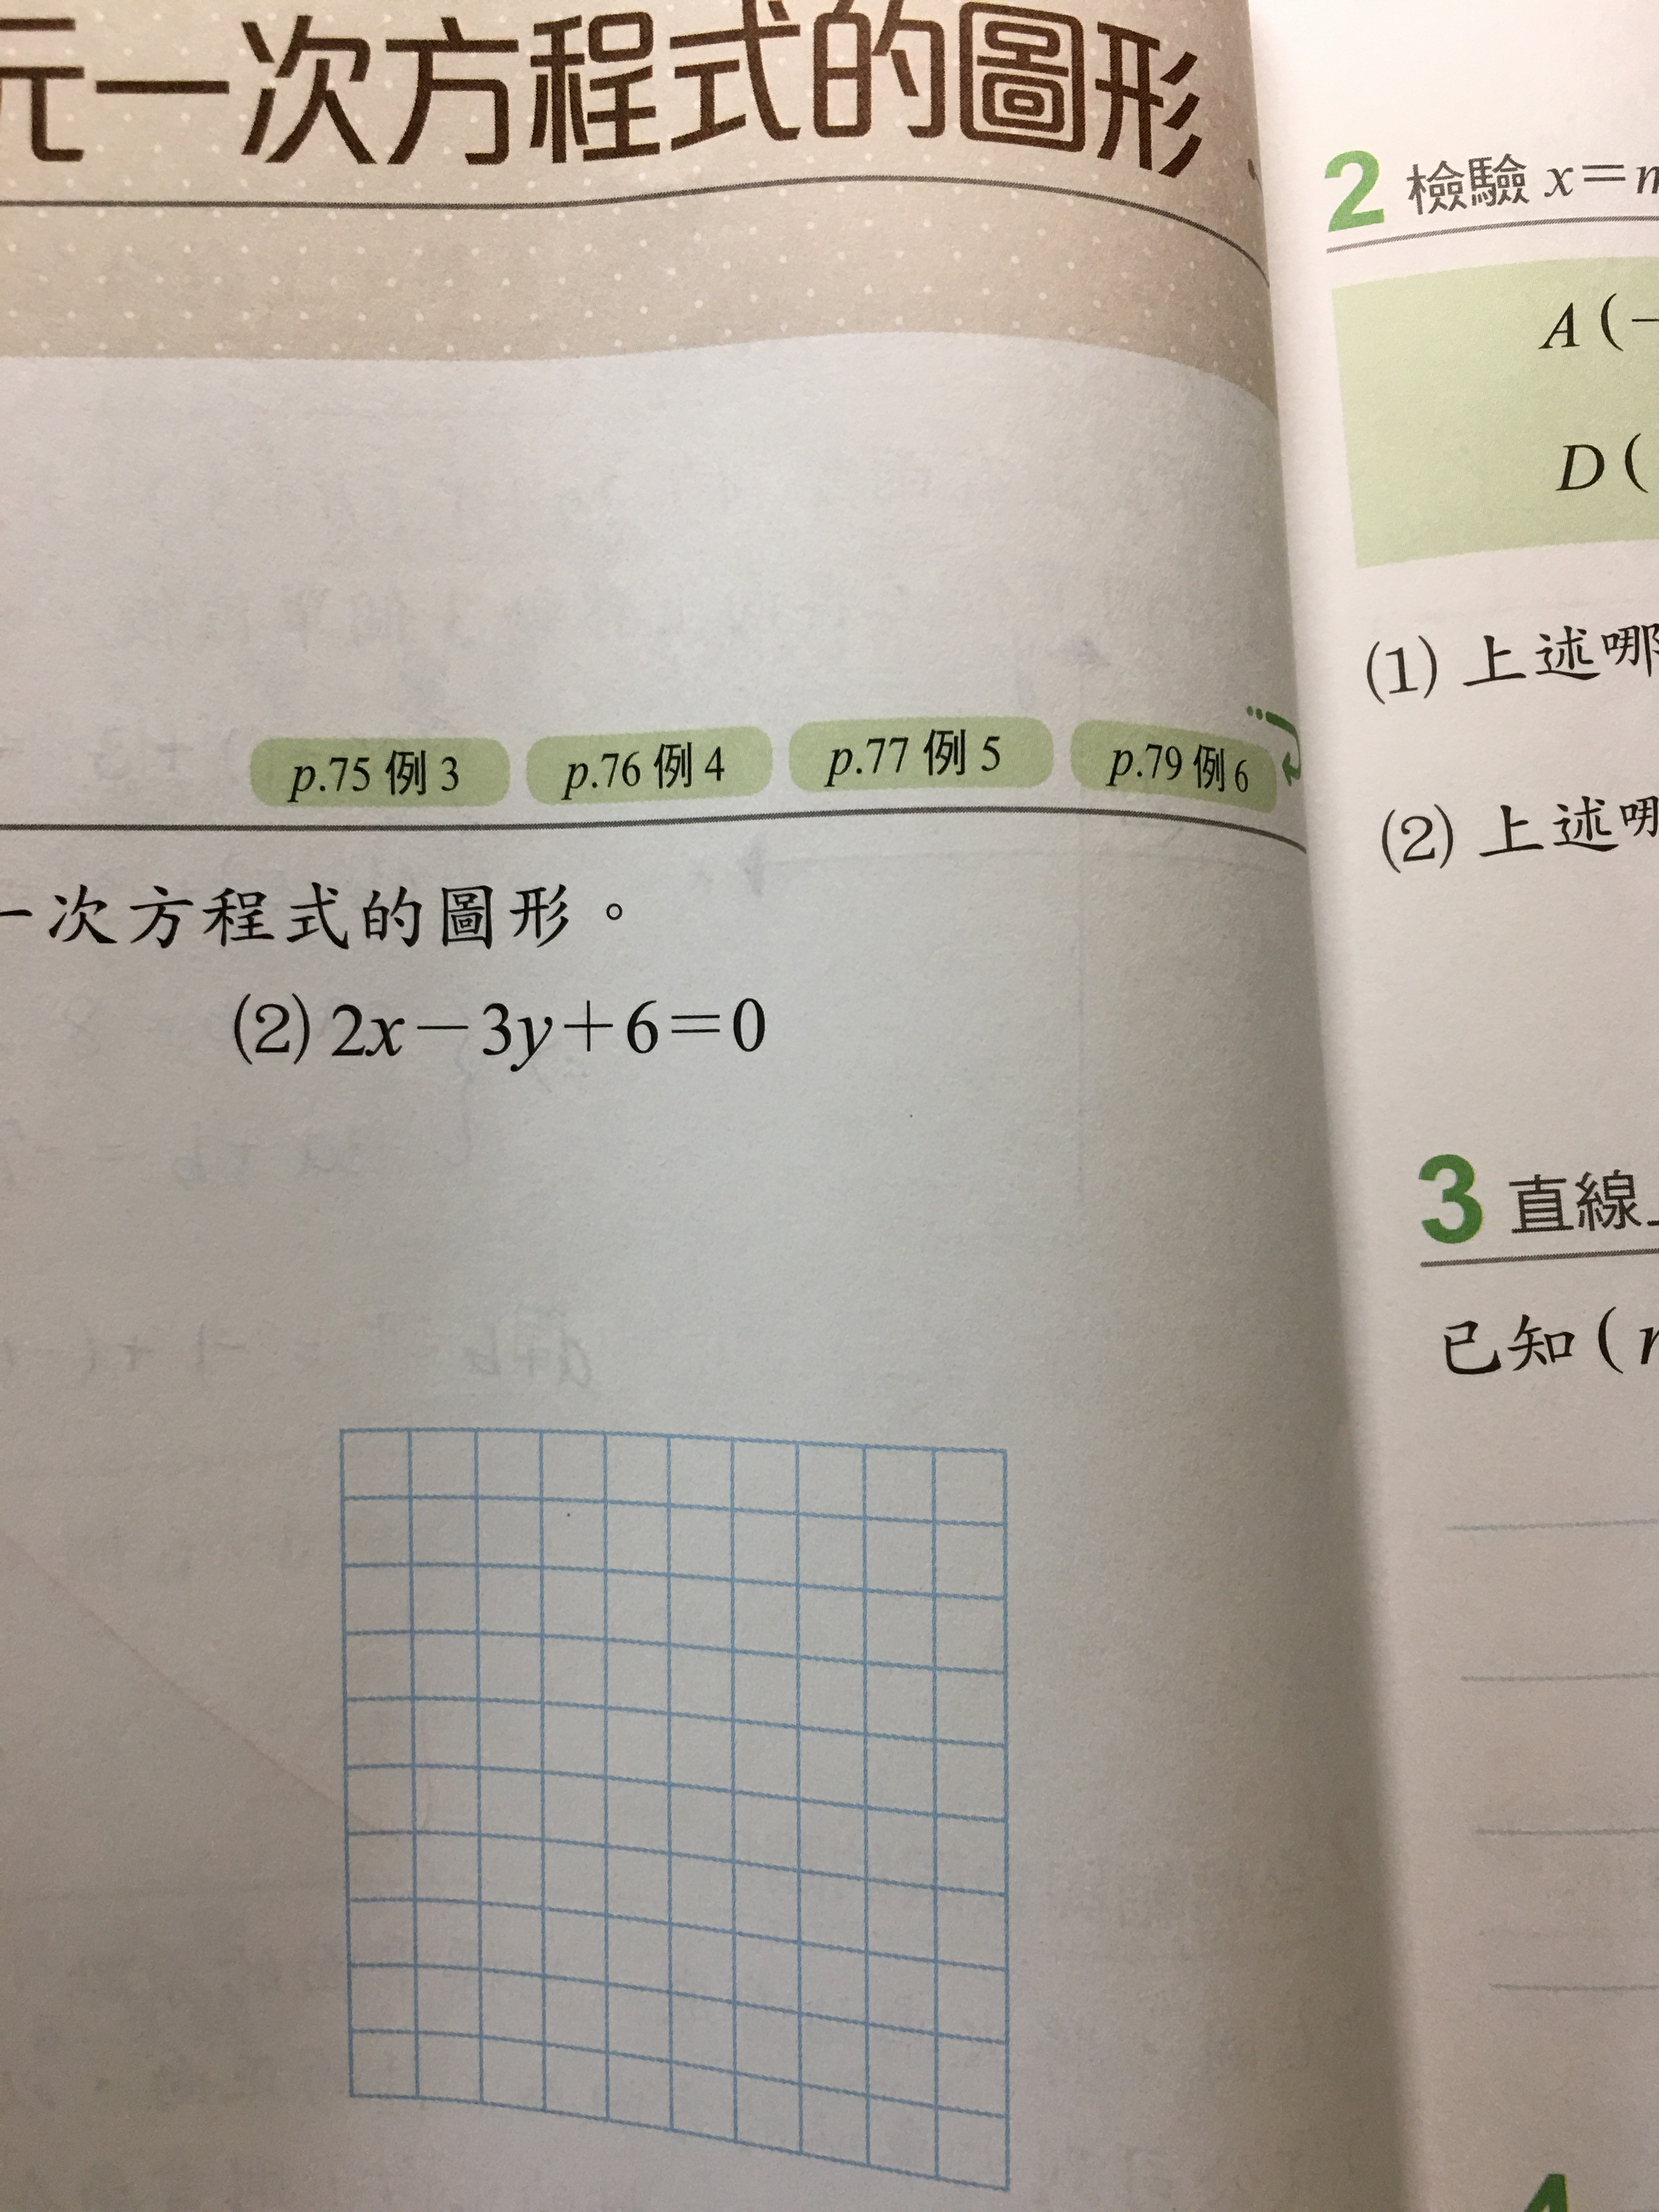 元一次方程式的圖形
p.75 例 3 p.76 例 4 p.77 例 5 p.79 例 6
一次方程式的圖形。
(2) 2x－3y＋6＝0
2 檢驗 x＝
A (－
D (
(1) 上述哪
(2) 上述哪
3 直線上
已知 (
4